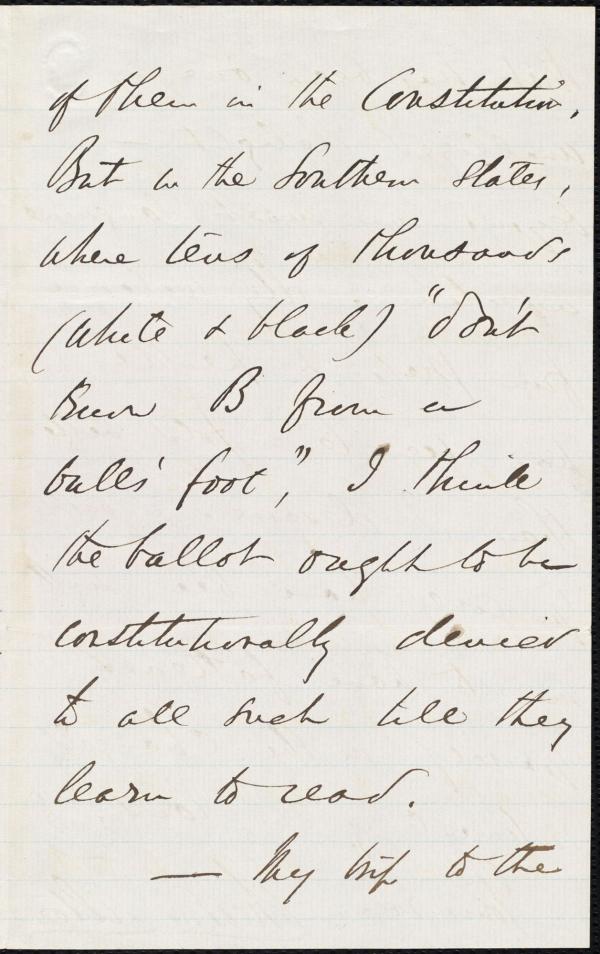 of them in the Constitution,
But in the Southern States,
where tens of thousands
(white & black) "don't
know B from a
bull's foot", I think
the ballot ought to be
constitutionally denied
to all such till they
learn to read.
— My trip to the